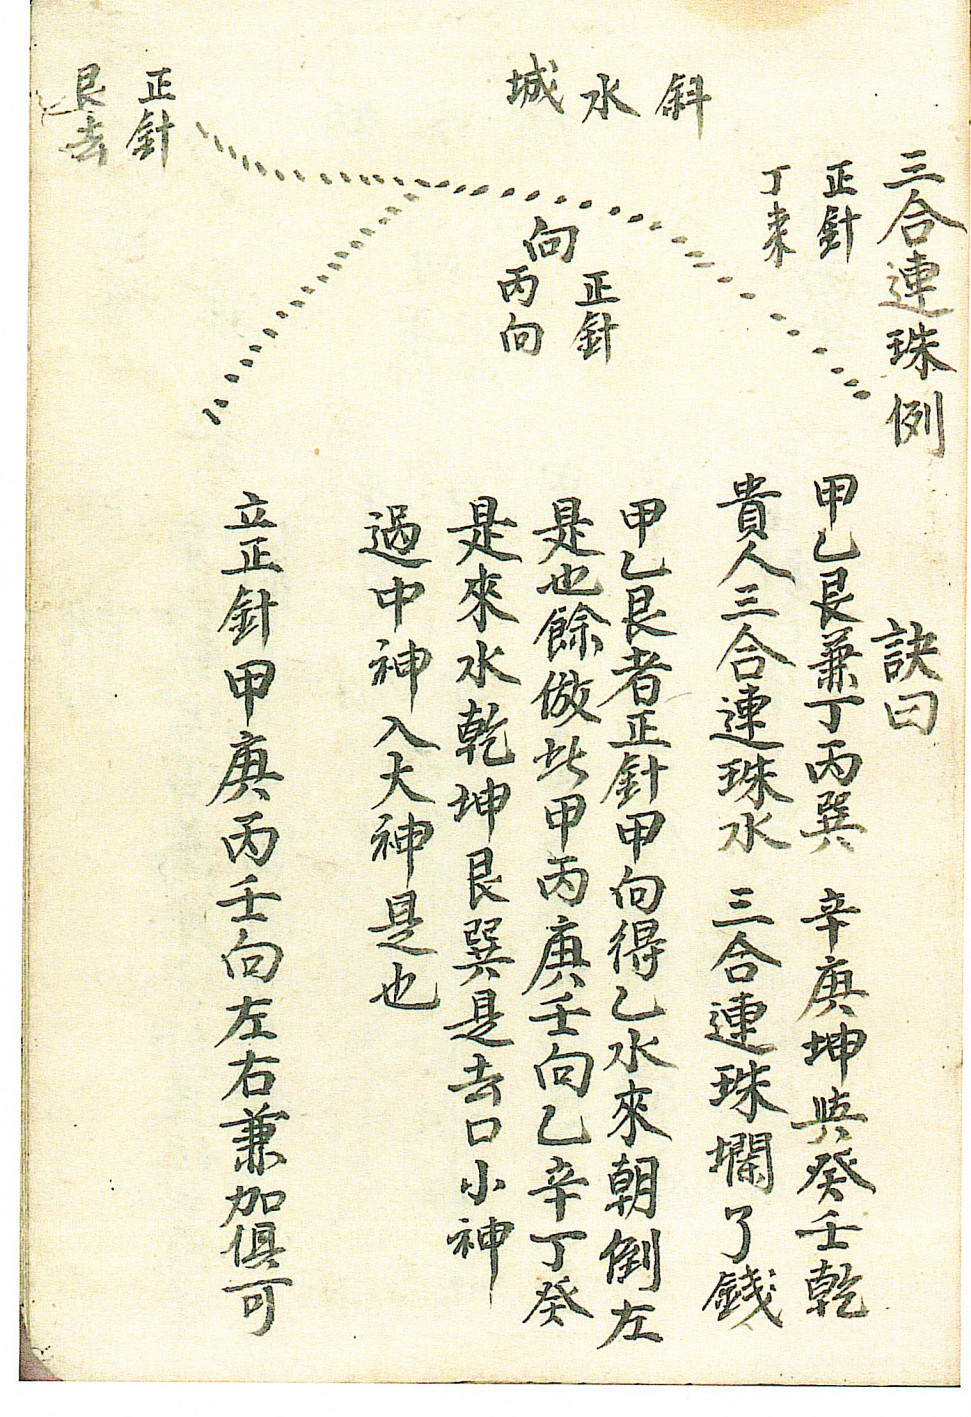 三合連珠例
正針
丁來
斜水城
向
正針
丙向
正針
艮去
訣曰
甲乙艮兼丁丙巽　辛庚坤與癸壬乾
貴人三合連珠水　三合連珠堋了錢
甲乙艮者正針甲向得乙水來朝倒左
是也餘倣此甲丙庚壬向乙辛丁癸
是來水乾坤艮巽是去口小神
過中神入大神是也
立正針甲庚丙壬向左右兼加俱可